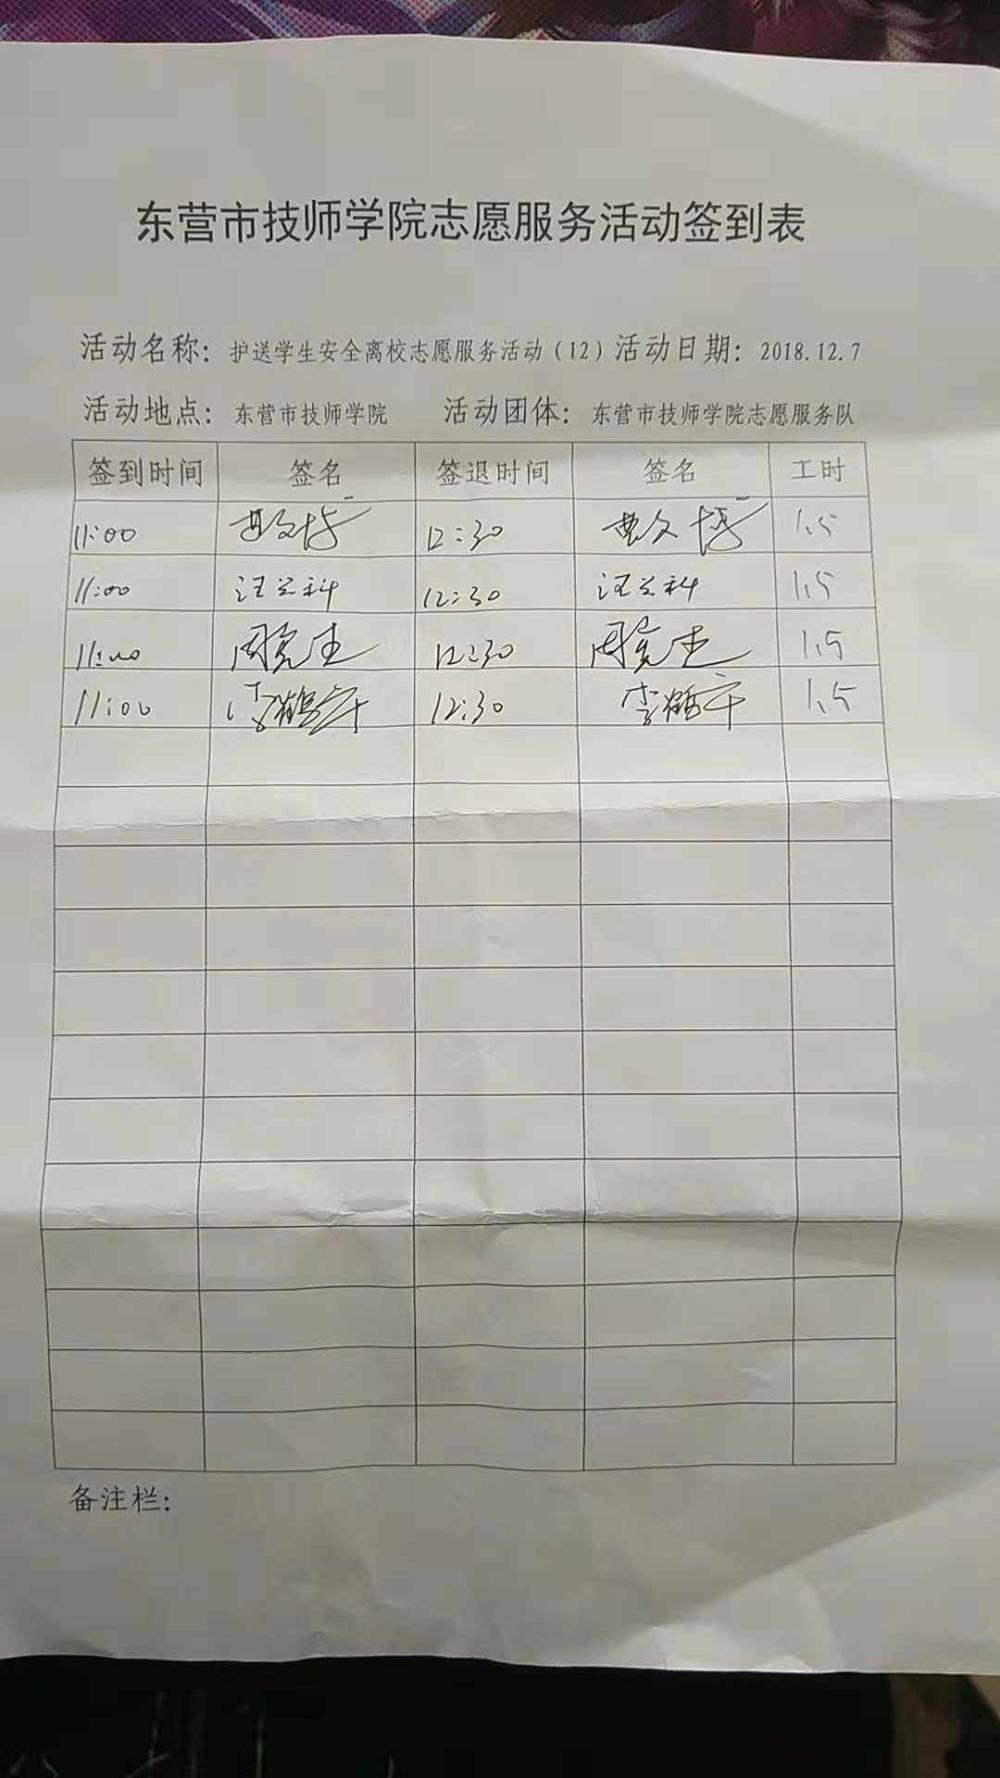 东营市技师学院志愿服务活动签到表
活动名称：护送学生安全离校志愿服务活动（12）活动日期：2018.12.7
活动地点：东营市技师学院 活动团体：东营市技师学院志愿服务队
签到时间 签名 签退时间 签名 工时
11:00 12:30 1.5
11:00 汪兰科 12:30 汪兰科 1.5
11:00 12:30 1.5
11:00 李鹤宇 12:30 李鹤宇 1.5
备注栏：